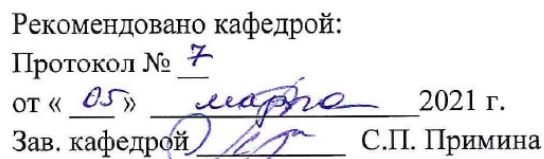 Рекомендовано кафедрой:
Протокол № 7
от « 05 » марта 2021 г.
Зав. кафедрой С.П. Примина